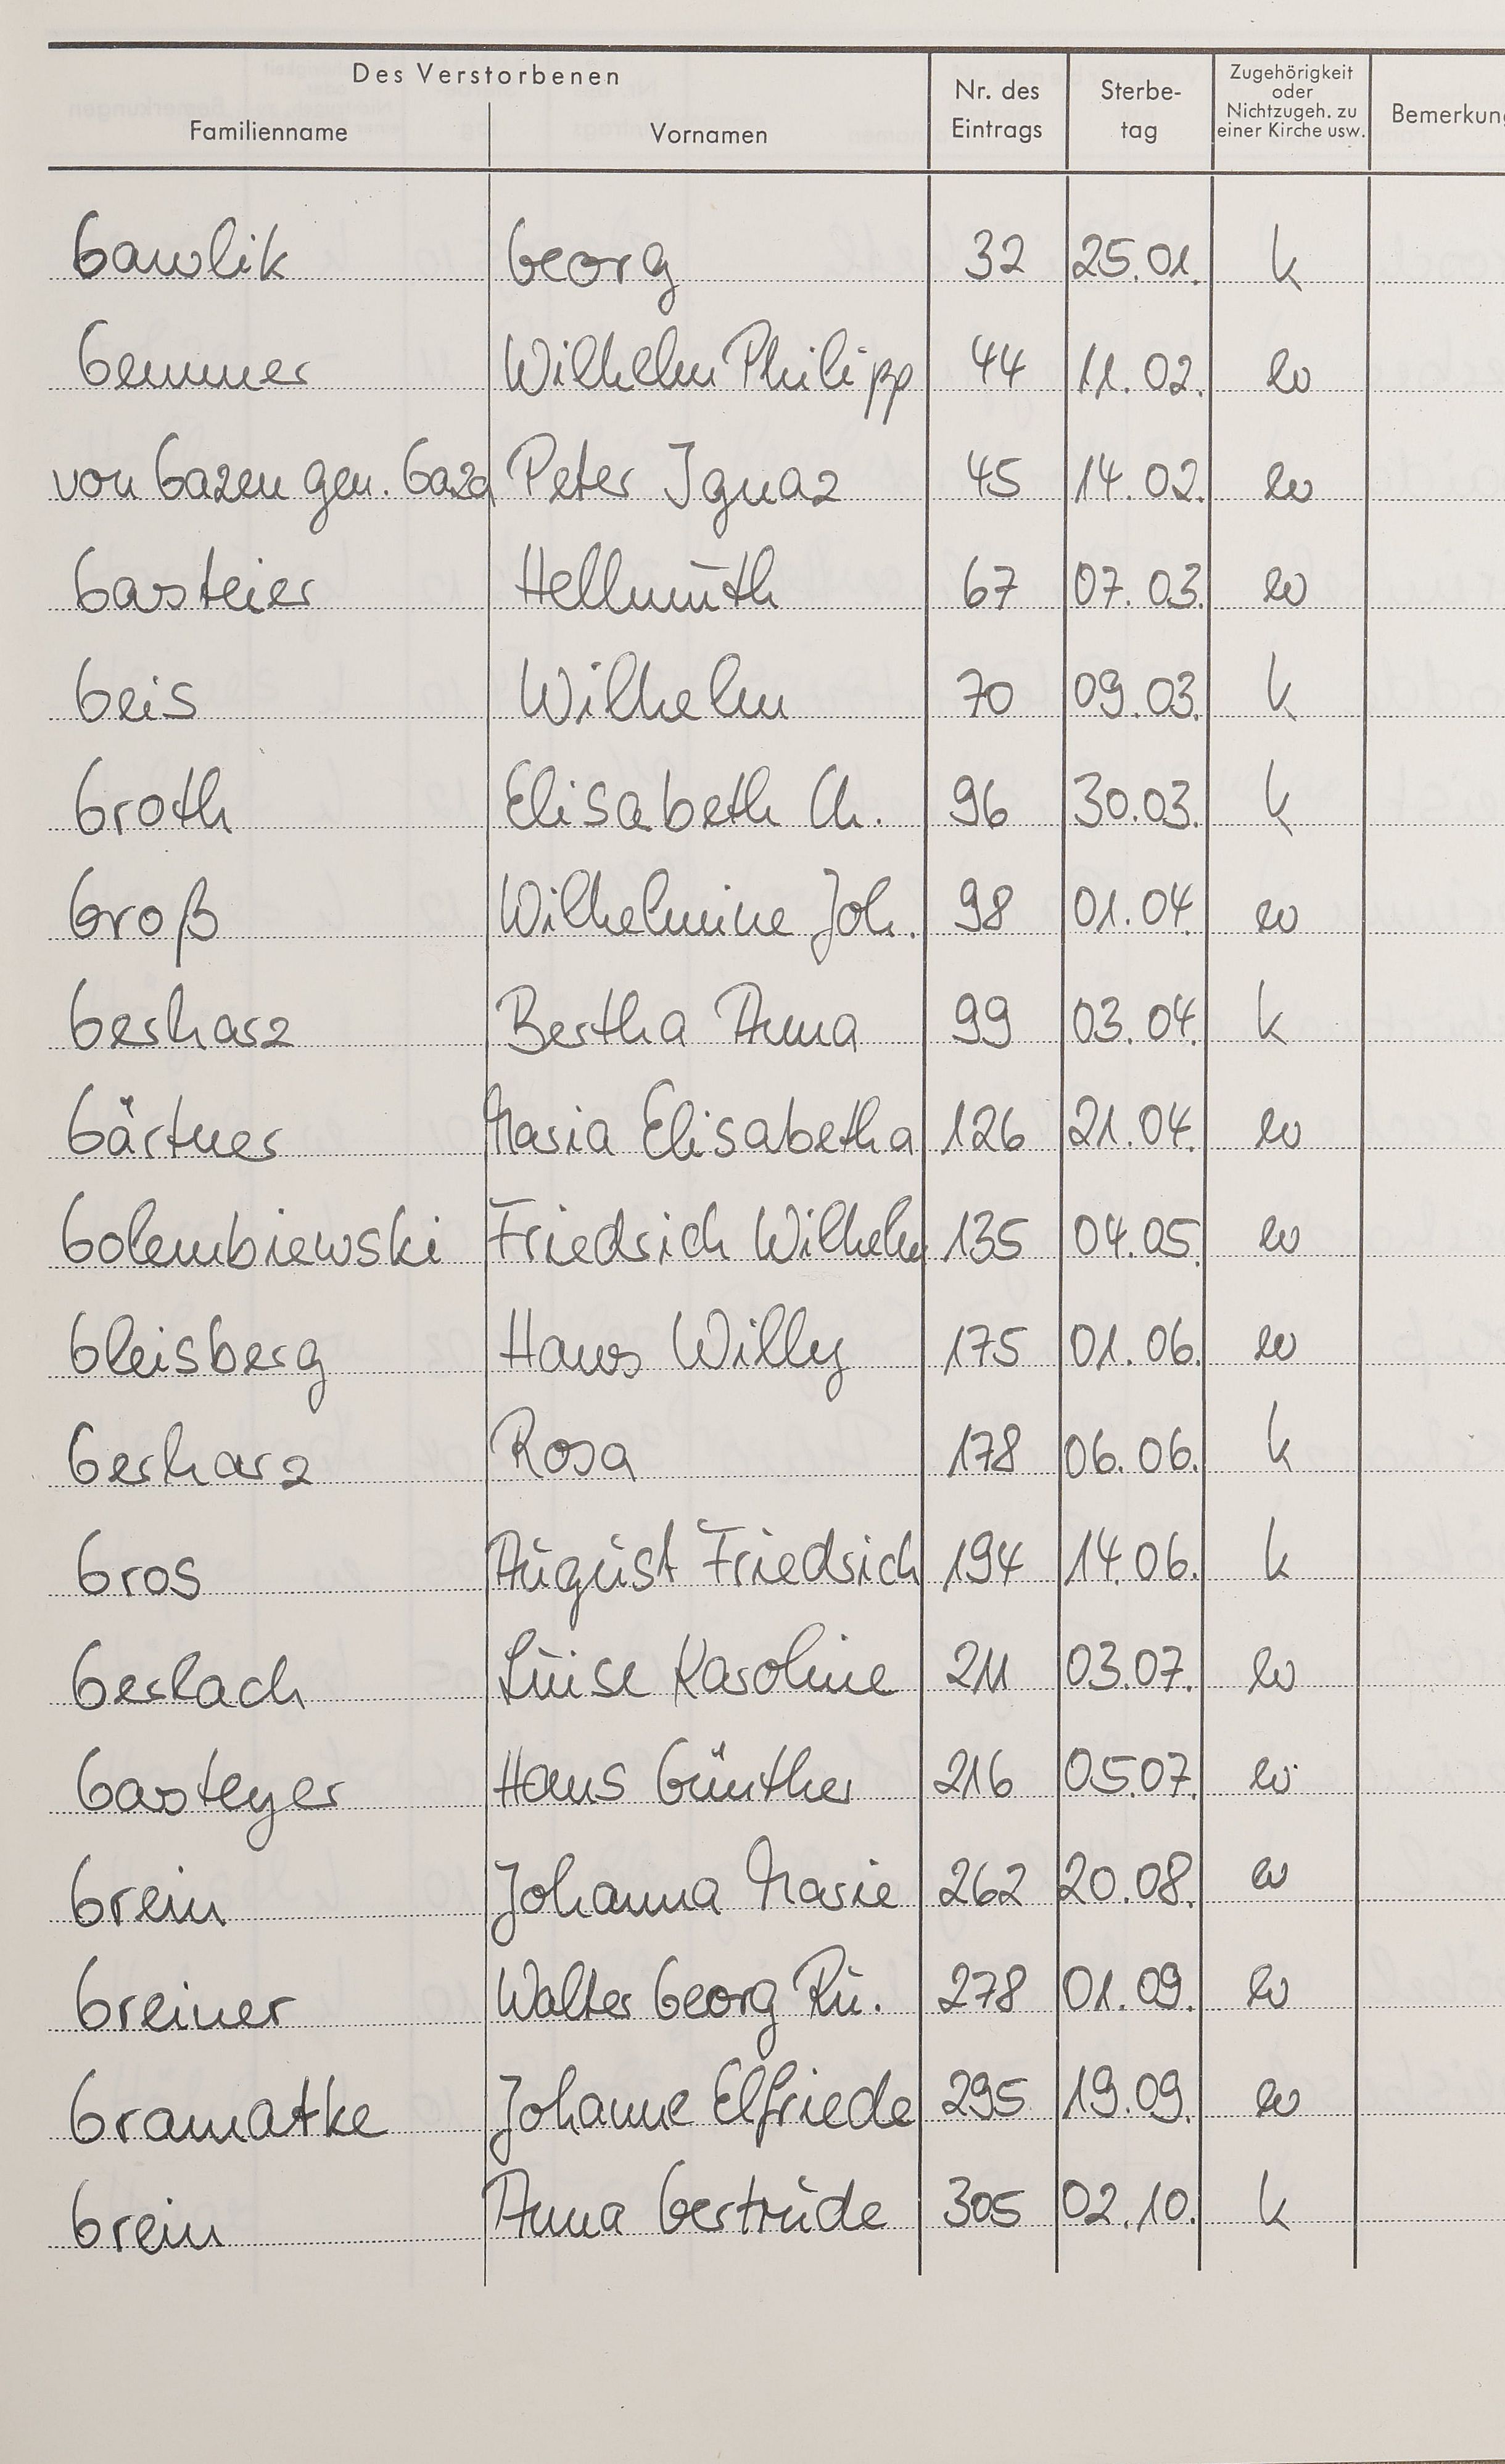 Des Verstorbenen
Familienname Vornamen Nr. des Eintrags Sterbe-tag Zugehörigkeit oder Nichtzugeh. zu einer Kirche usw. Bemerkung
Gawlik Georg 32 25.01. k
Gemmer Wilhelm Philipp 44 11.02. ev
von Gazen gen. Gaza Peter Ignaz 45 14.02. ev
Gasteier Hellmuth 67 07.03. ev
Geis Wilhelm 70 09.03. k
Groth Elisabeth Ch. 96 30.03. k
Groß Wilhelmine Joh. 98 01.04. ev
Gerharz Bertha Anna 99 03.04. k
Gärtner Maria Elisabetha 126 21.04. ev
Golembiewski Friedrich Wilhelm 135 04.05. ev
Gleisberg Hans Willy 175 01.06. ev
Gerharz Rosa 178 06.06. k
Gros August Friedrich 194 14.06. k
Gerlach Luise Karoline 211 03.07. ev
Gasteyer Hans Günther 216 05.07. ev
Grein Johanna Marie 262 20.08. ev
Greiner Walter Georg Ru. 278 01.09. ev
Gramatke Johanne Elfriede 295 19.09. ev
Grein Anna Gertrude 305 02.10. k